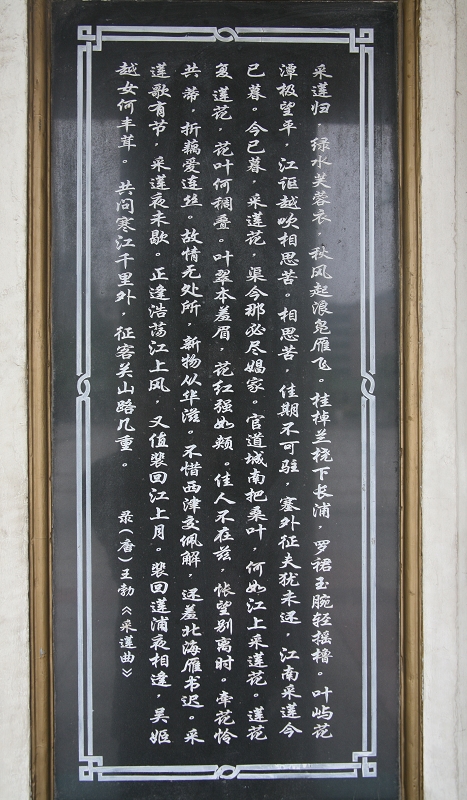 采莲归，绿水芙蓉衣，秋风起浪凫雁飞。桂棹兰桡下长浦，罗裙玉腕轻摇橹。叶屿花
潭极望平，江讴越吹相思苦。相思苦，佳期不可驻，塞外征夫犹未还，江南采莲今
已暮。今已暮，采莲花，渠今那必尽娼家。官道城南把桑叶，何如江上采莲花。莲花
复莲花，花叶何稠叠。叶翠本羞眉，花红强如颊。佳人不在兹，怅望别离时。牵花怜
共蒂，折藕爱连丝。故情无处所，新物从华滋。不惜西津交佩解，还羞北海雁书迟。采
莲歌有节，采莲夜未歇。正逢浩荡江上风，又值裴回江上月。裴回莲浦夜相逢，吴姬
越女何丰茸。共问寒江千里外，征客关山路几重。 录(唐)王勃《采莲曲》